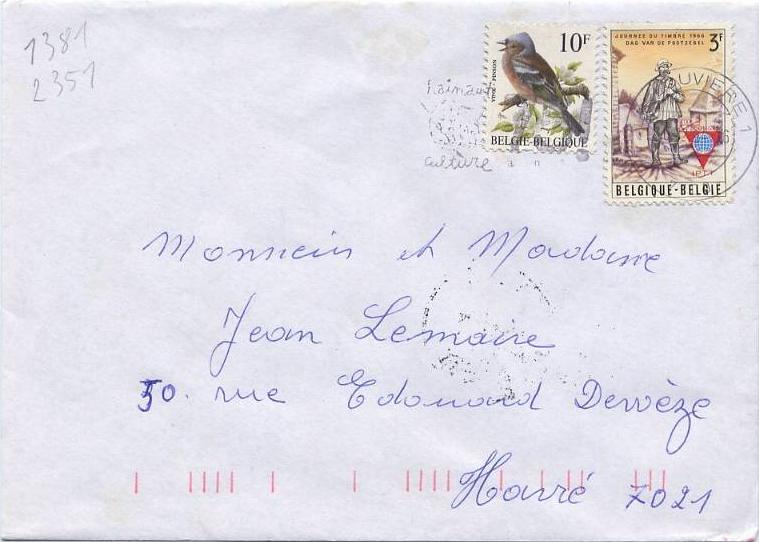 1381
2351
10F
VINK - PINSON
BELGIE-BELGIQUE
JOURNEE DU TIMBRE 1966
DAG VAN DE POSTZEGEL
3F
BELGIQUE-BELGIE
UVIERE 1
hainaut
culture
Monsieur et Madame
Jean Lemaire
50. rue Edouard Devèze
Havré 7021